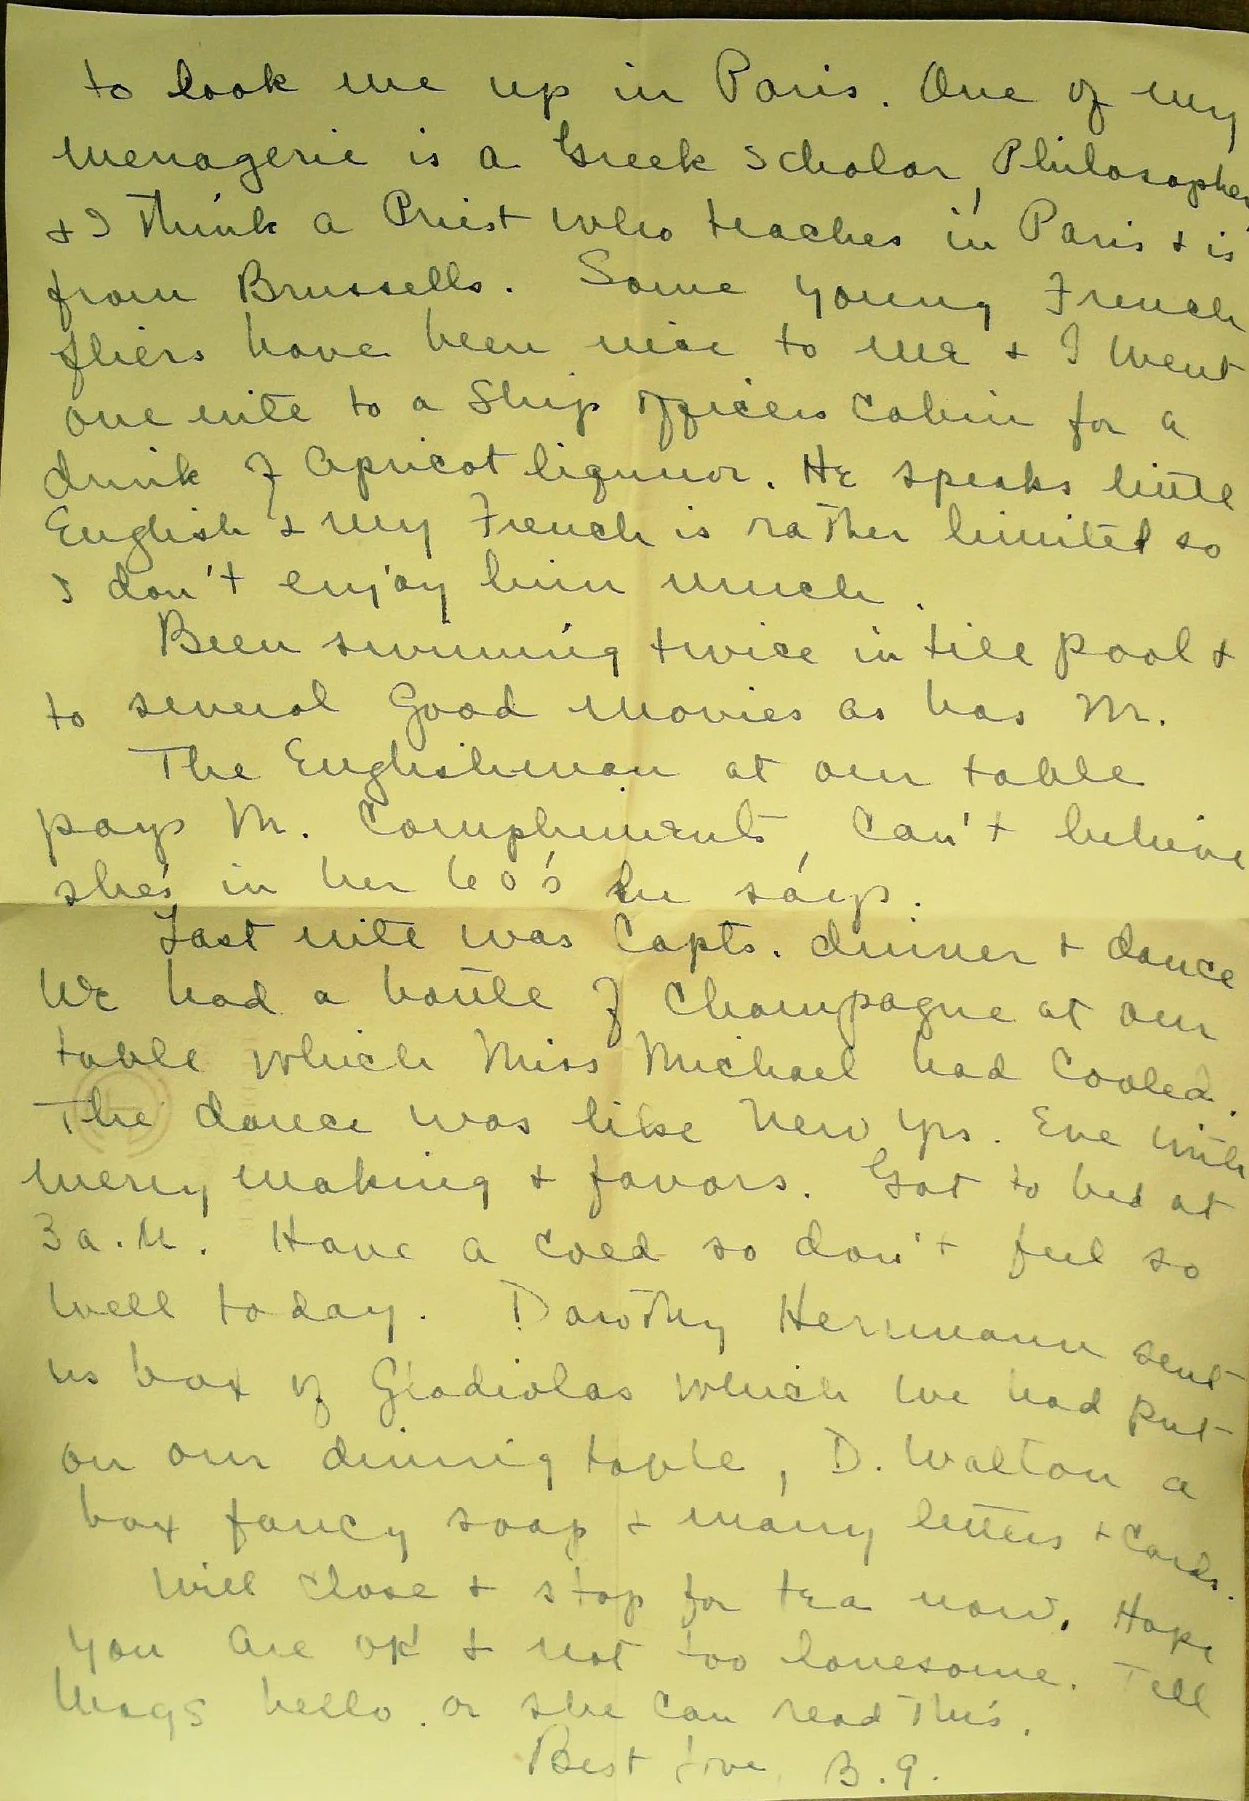 to look me up in Paris. One of my
menagerie is a Greek Scholar, Philosopher
+ I think a Priest who teaches in Paris + is
from Brussells. Some young French
fliers have been nice to me + I went
one nite to a Ship officers cabin for a
drink of Apricot liquuor. He speaks little
English + my French is rather limited so
I don't enjoy him much.
Been swimming twice in tile pool +
to several Good movies as has M.
The Englishman at our table
pays M. Compliments, Can't believe
she's in her 60's he says.
Last nite was Capts. dinner + dance
We had a bottle of Champagne at our
table which Miss Michael had cooled.
The dance was like New Yrs. Eve with
merry making + favors. Got to bed at
3 a.m. Have a cold so don't feel so
well today. Dorothy Herrmann sent
us box of Gladiolas which we had put
on our dinning table, D. Walton a
box fancy soap + many letters + cards.
Will close + stop for tea now. Hope
you are ok + not too lonesome. Tell
hello. or she can read this.
Best love B.G.